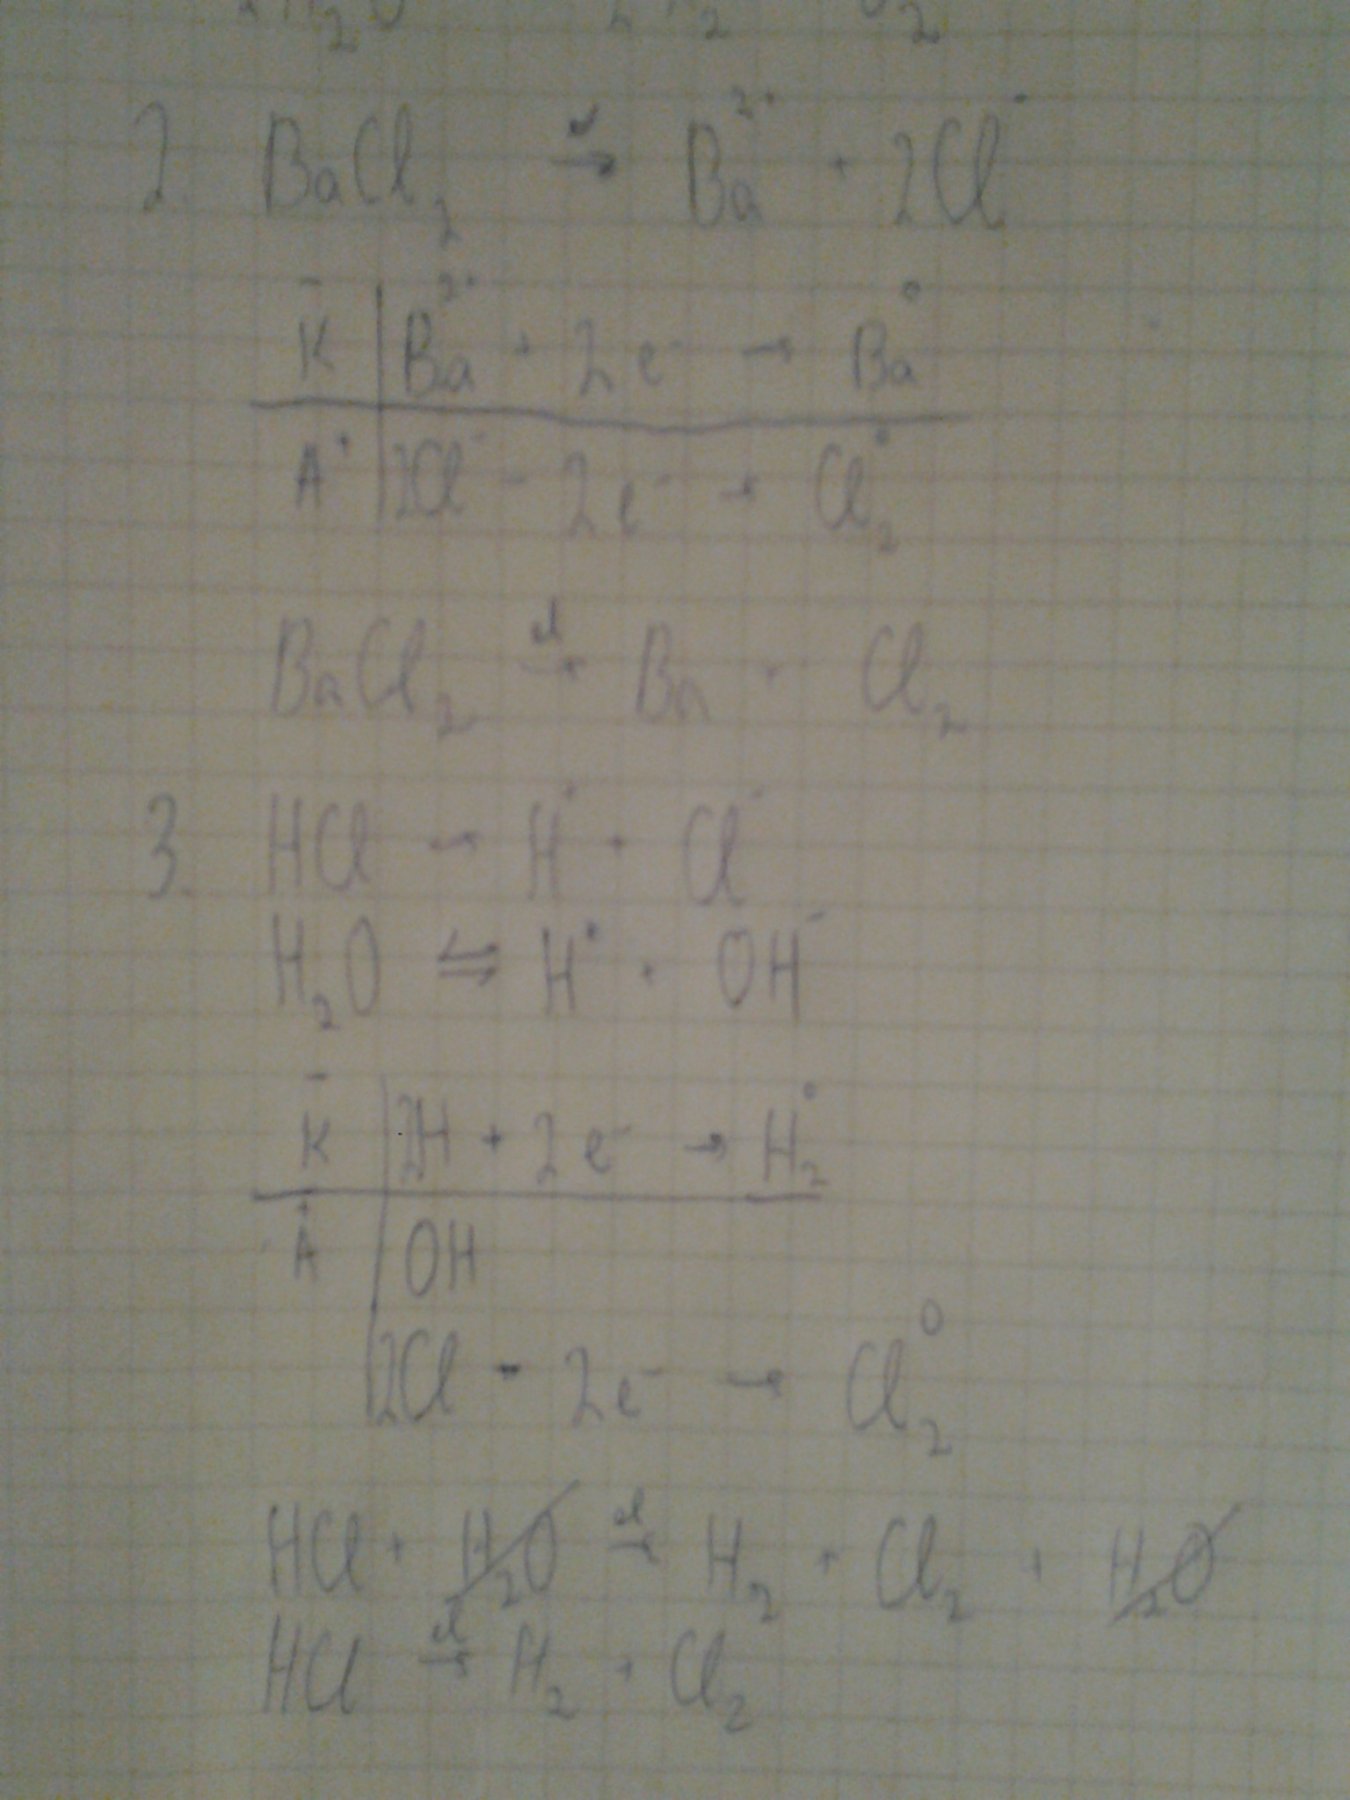 2. BaCl₂ → Ba²⁺ + 2Cl⁻
K⁻ | Ba²⁺ + 2e⁻ → Ba⁰
A⁺ | 2Cl⁻ - 2e⁻ → Cl₂⁰
BaCl₂ el→ Ba + Cl₂
3. HCl → H⁺ + Cl⁻
H₂O ⇌ H⁺ + OH⁻
K⁻ | 2H + 2e⁻ → H₂⁰
A⁺ | OH
2Cl - 2e⁻ → Cl₂⁰
HCl + H₂O el→ H₂ + Cl₂ + H₂O
HCl el→ H₂ + Cl₂